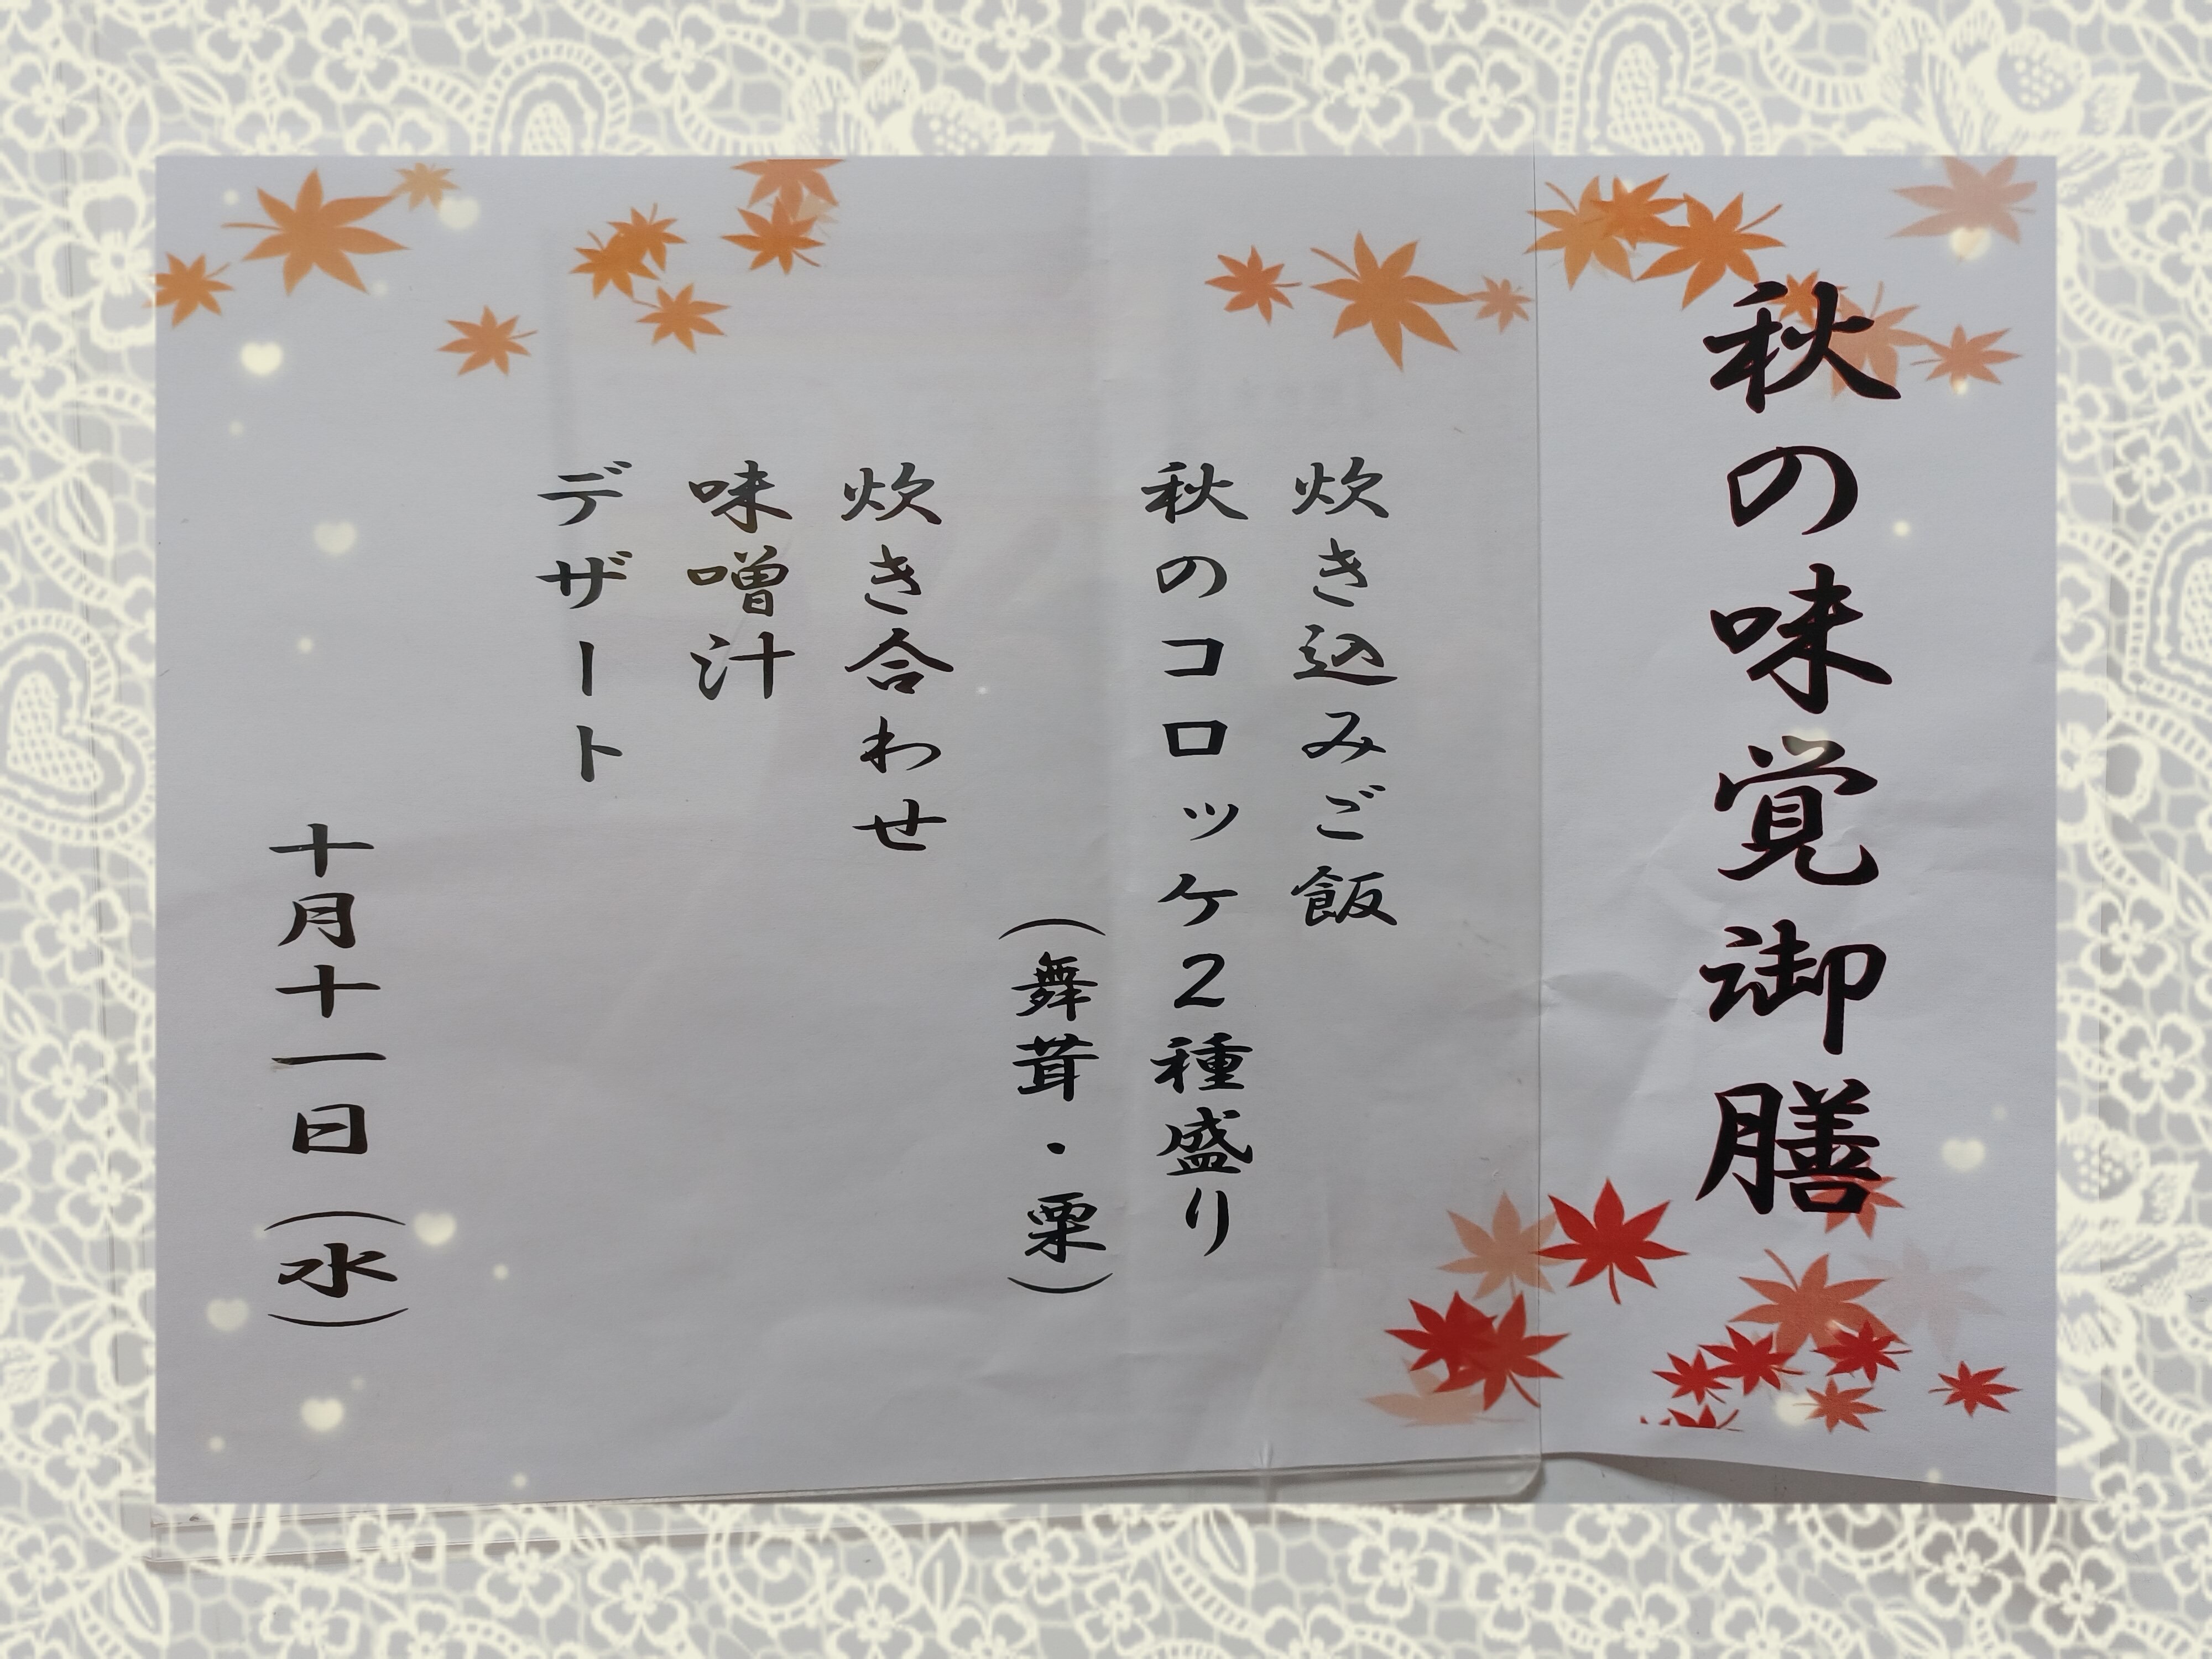 秋の味覚御膳
炊き込みご飯
秋のコロッケ2種盛り
（舞茸・栗）
炊き合わせ
味噌汁
デザート
十月十一日（水）